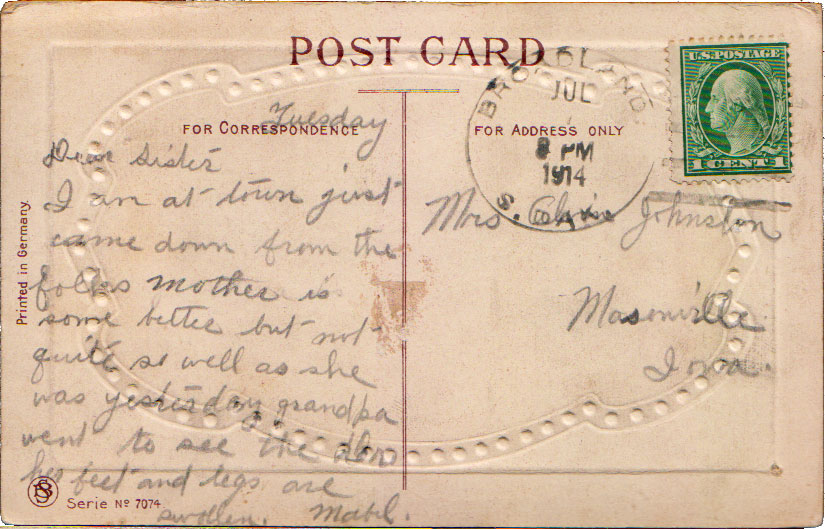 POST CARD
Tuesday
FOR CORRESPONDENCE
Dear Sister
I am at town just
came down from the
folks mother is
some better but not
quite so well as she
was yesterday grandpa
went to see the
her feet and legs are
swollen. Mabl.
Printed in Germany
Serie No 7074
FOR ADDRESS ONLY
JUL
8 PM
1914
U.S. POSTAGE
1 CENT 1
Mrs Johnston
Masonville
Iowa.